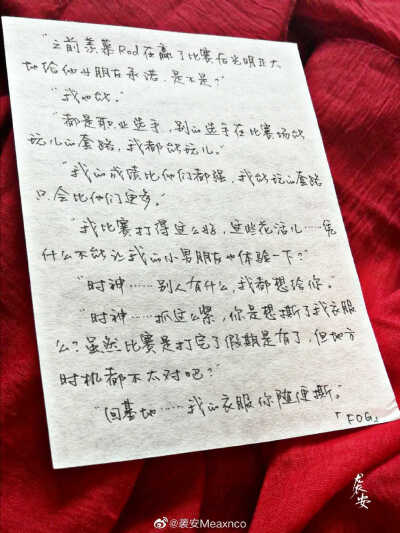 “之前羡慕Rod在赢了比赛后光明正大
地给他女朋友承诺,是不是?”
“我也能。”
“都是职业选手,别的选手在比赛场能
玩儿的套路,我都能玩儿。”
“我的成绩比他们都强,我能玩的套路
只会比他们更多。”
“我比赛打得这么好,这些花活儿……凭
什么不能让我的小男朋友也体验一下?”
“时神……别人有什么,我都想给你。”
“时神……抓这么紧,你是想撕了我衣服
么?虽然比赛是打完了假期是有了,但地方
时机都不太对吧?”
“回基地……我的衣服你随便撕。”
「FOG」
袭安
@袭安Meaxnco